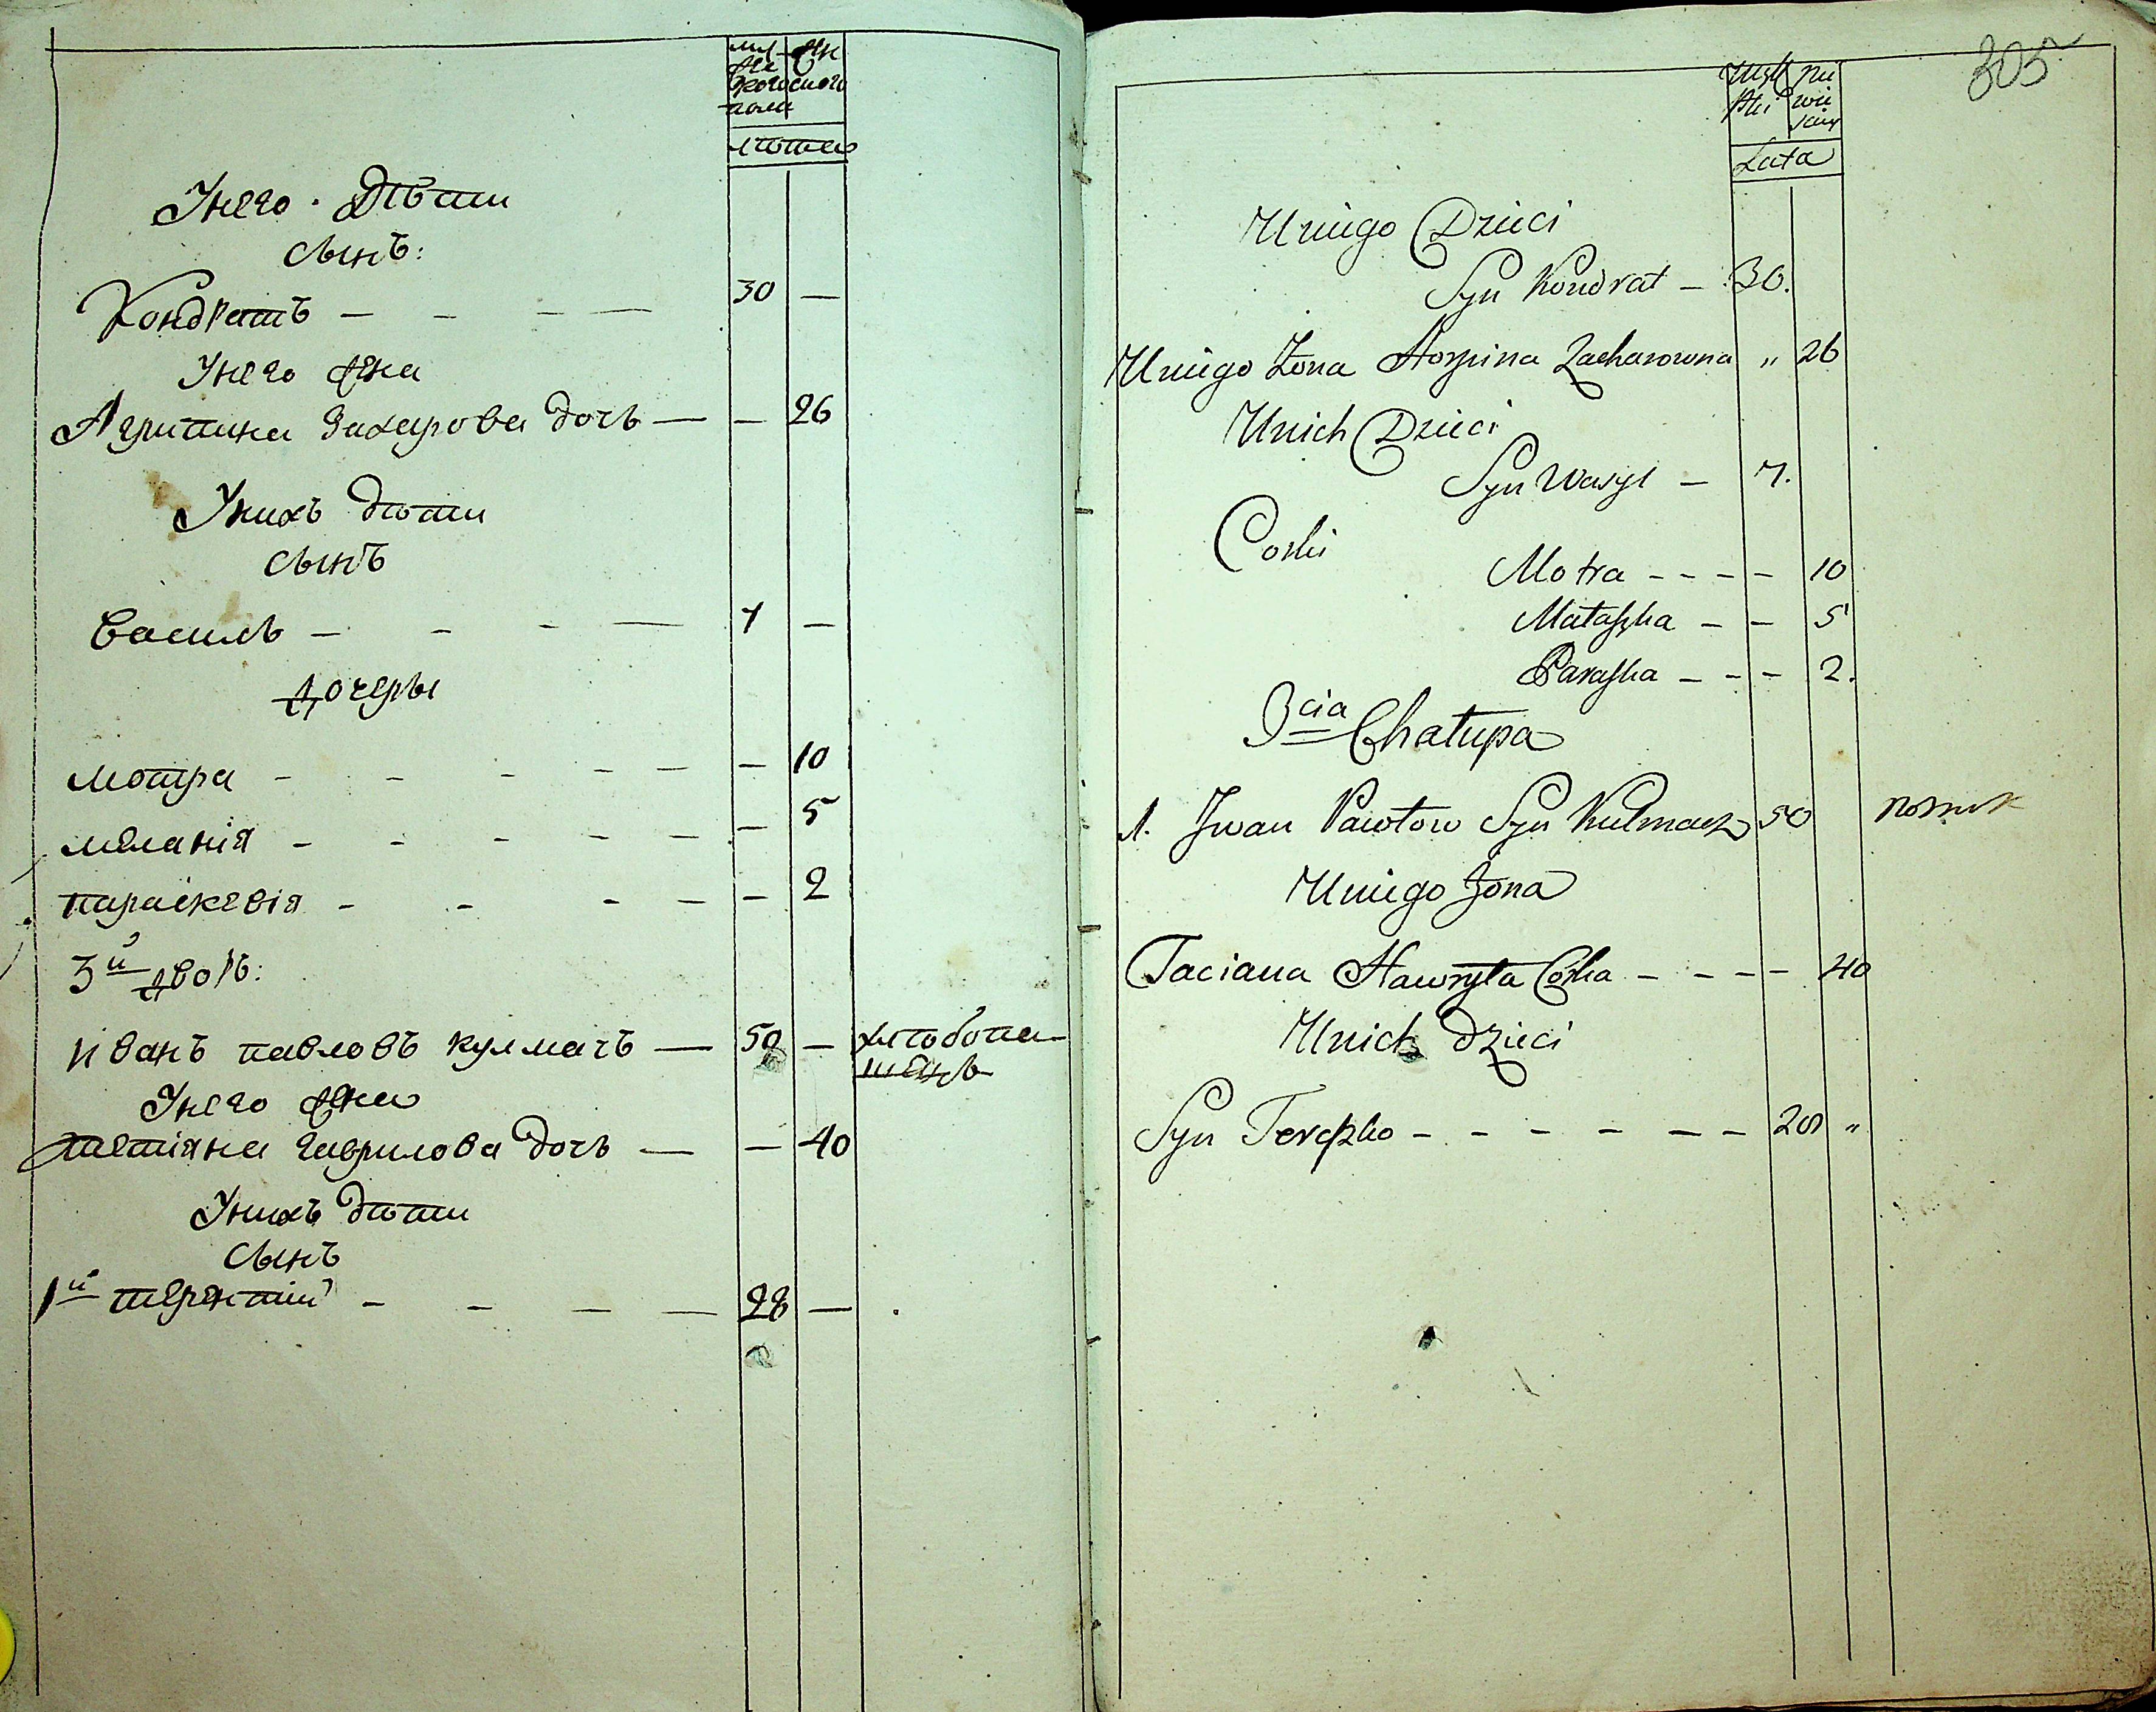 муже женскогоского
пола
лѣта
У него дѣти
сынъ:
Кондратъ — — — — 30 —
У него жена
Агрипина Захарова дочь — — 26
У нихъ дѣти
сынъ
Василь — — — — 7 —
дочеры
мотра — — — — — — 10
мѣланія — — — — — — 5
параскевія — — — — — 2
3й дворъ:
Иванъ павловъ кулмачъ — 50 — хлѣбопашецъ
У него жена
татіяна гаврилова дочь — — 40
У нихъ дѣти
сынъ
1й терентій — — — — 28 —
305
Lata
U niego Dzieci
Syn Kondrat — 30.
U niego Żona Horpina Zacharowna „ 26
U nich Dzieci
Syn Wasyl — 7.
Corki
Motra - - - - 10
Małaszka - - 5
Paraska - - - 2.
3cia Chałupa
1. Jwan Pawłow Syn Kulmacz 50 rolnik
U niego Żona
Taciana Hawryła Córka - - - - 40
U nich dzieci
Syn Tereszko - - - - - - 28 „